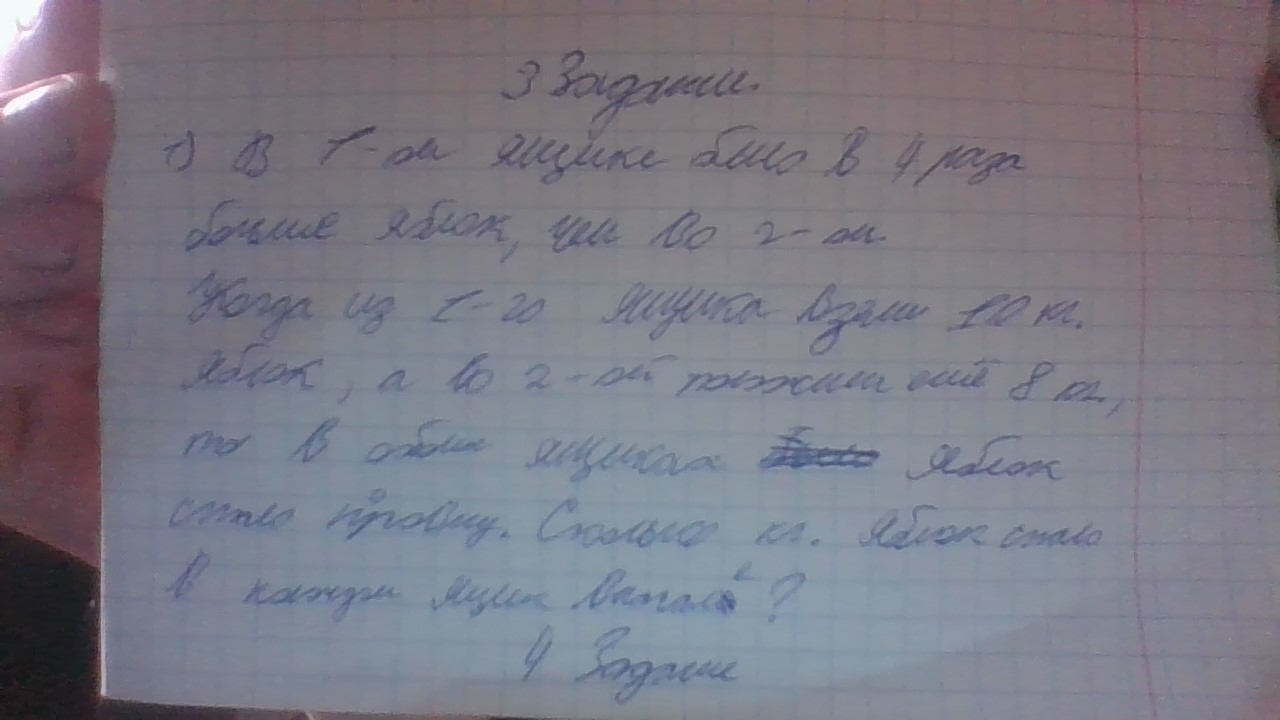 3 Задание.
1) В 1-ом ящике было в 4 раза
больше яблок, чем во 2-ом.
Когда из 1-го ящика взяли 10 кг.
яблок, а во 2-ой положили ещё 8 кг,
то в обоих ящиках яблок
стало поровну. Сколько кг. яблок стало
в каждом ящик
4 Задание